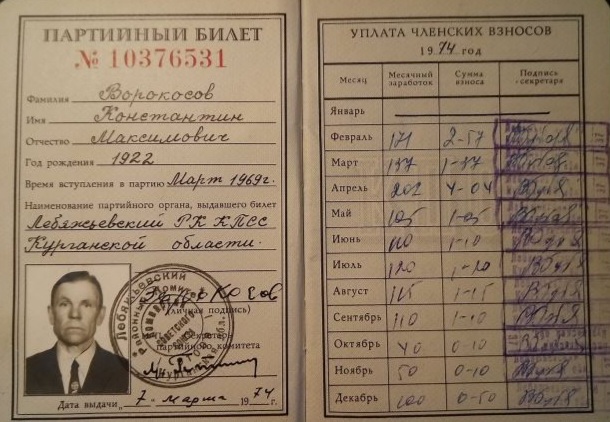 ПАРТИЙНЫЙ БИЛЕТ
№ 10376531
Фамилия Ворокосов
Имя Константин
Отчество Максимович
Год рождения 1922
Время вступления в партию Март 1969г.
Наименование партийного органа, выдавшего билет
Лебяжьевский РК КПСС
Курганской области.
(личная подпись)
партийного комитета
Дата выдачи „7“ марта 1974 г.
УПЛАТА ЧЛЕНСКИХ ВЗНОСОВ
1974 год
Месяц Месячный заработок Сумма взноса Подпись секретаря
Январь
Февраль 171 2-57
Март 137 1-37
Апрель 202 4-04
Май 105 1-05
Июнь 110 1-10
Июль 120 1-20
Август 115 1-15
Сентябрь 110 1-10
Октябрь 40 0-10
Ноябрь 50 0-10
Декабрь 100 0-50